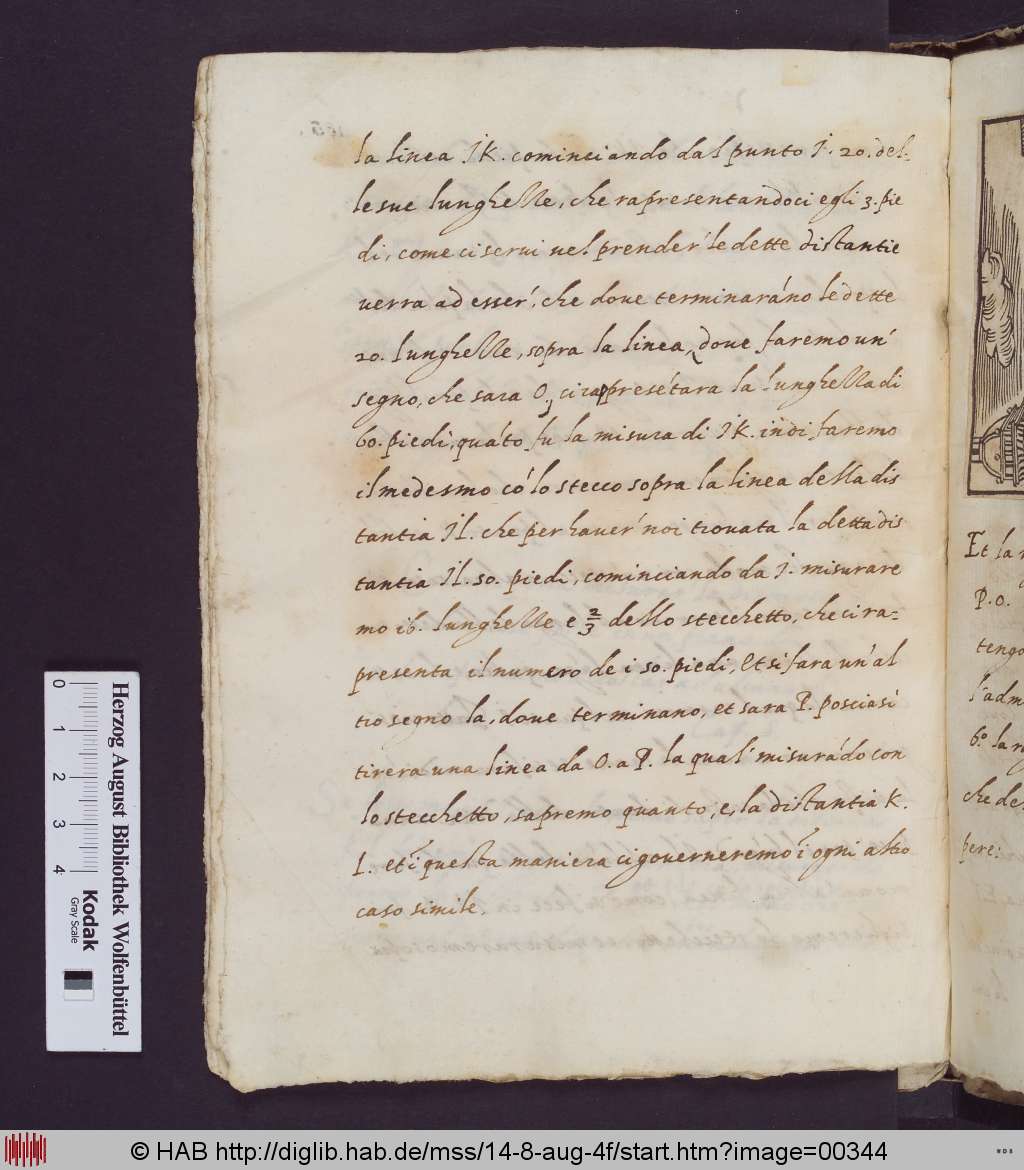 la linea IK. cominciando dal punto I. 20. del-
le sue lunghelle, che rapresentandoci egli 3. pie
di, come ci serui nel prender' le dette distantie
uerra ad esser', che doue terminaráno le dette
20. lunghelle, sopra la linea, doue faremo un'
segno, che sara O, ci rapresétara la lunghella di
60. piedi, quáto fu la misura di IK. indi faremo
il medesmo có lo stecco sopra la linea della dis
tantia IL. che per hauer' noi trouata la detta dis
tantia IL. 50. piedi, cominciando da I. misurare
mo 16. lunghelle e 2/3 dello stecchetto, che ci ra-
presenta il numero de i 50. piedi, Et si fara un' al
tro segno la, doue terminano, et sara P. poscia si
tirera una linea da O. a P. la qual' misurádo con
lo stecchetto, sapremo quanto, e, la distantia K.
L. et ī questa maniera ci gouerneremo ī ogni altro
caso simile.
Et la
P.O.
tengo
l'adm
6º. la
che de
pere:
Herzog August Bibliothek Wolfenbüttel
0 1 2 3 4
Kodak
Gray Scale
© HAB http://diglib.hab.de/mss/14-8-aug-4f/start.htm?image=00344